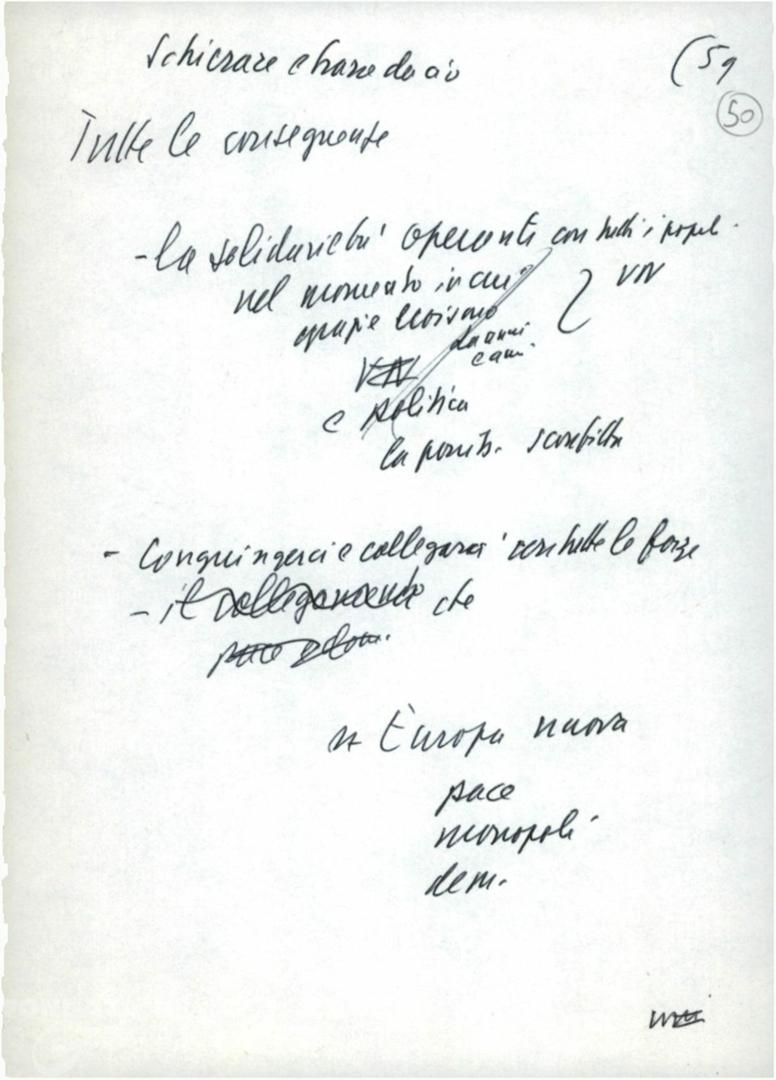 Schierare e trarre da ciò
(59
50
Tutte le conseguenze
- la solidarietà operante con tutti i popol.
nel momento in cui
VN
da anni
e anni
VN
e politica
la sconfitta
- Congiungerci e collegarci con tutte le forze
- il collegamento che
pace
x Europa nuova
pace
monopoli
dem.